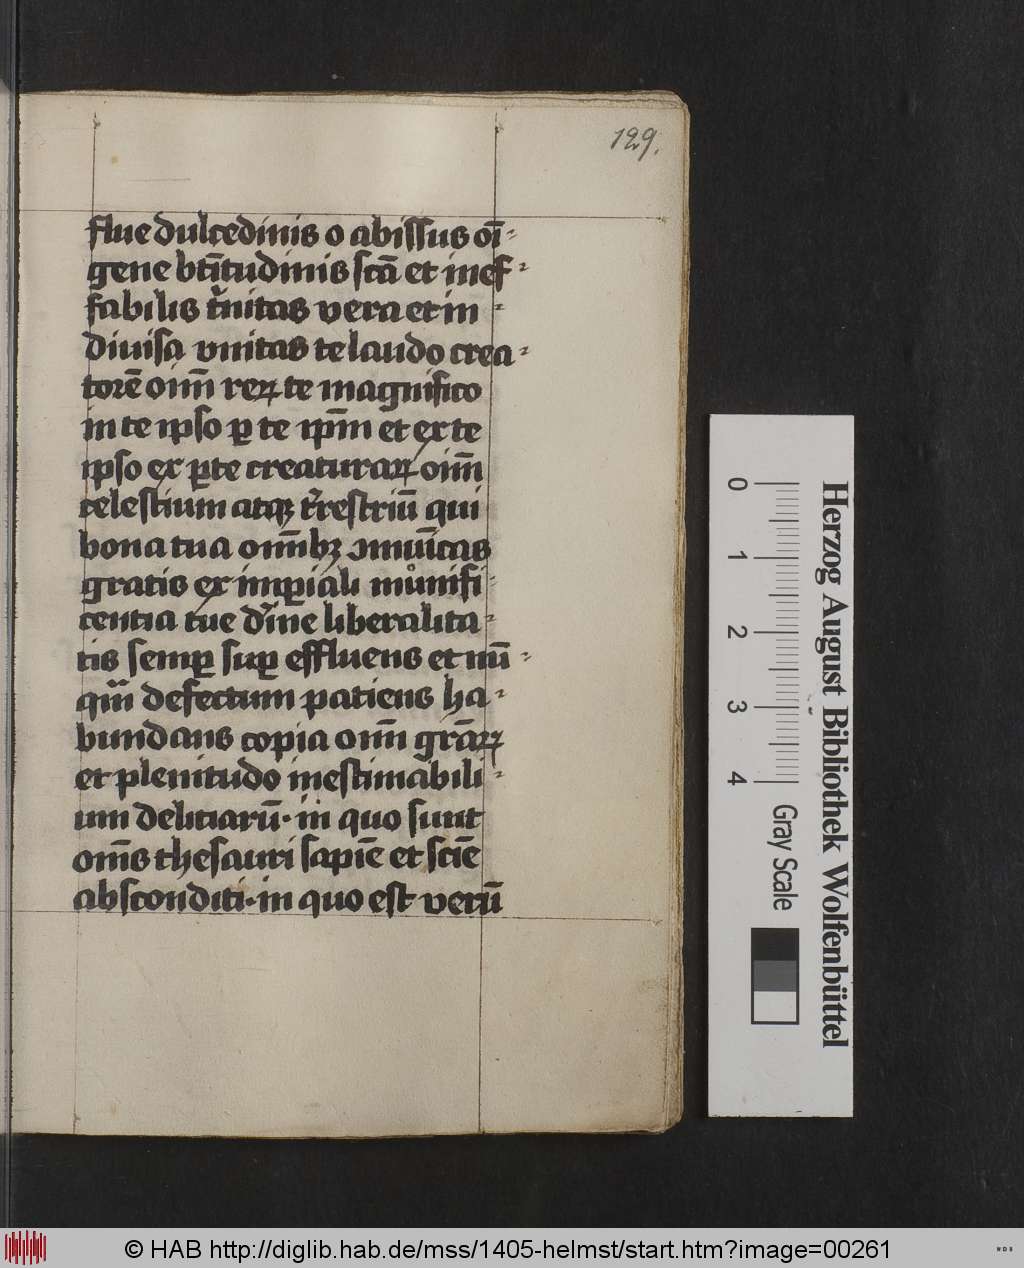 129.
flue dulcedinis o abissus oı̄⸗
gene btı̄tudinis scā et inef⸗
fabilis t̾nitas vera et in⸗
diuisa vnitas te laudo crea⸗
torē oim̄ reꝝ te magnifico
in te ipso ꝑ te ip̄m et ex te
ipso ex ꝑte creaturaꝝ oim̄
celestium atqꝫ t̾restriū qui
bona tua om̄ibꝫ ꝯmuı̄cas
gratis ex imꝑiali mu̾nifi⸗
centia tue d̾ine liberalita⸗
tis semꝑ suꝑ effluens et nū⸗
qm̄ defectum patiens ha⸗
bundans copia om̄ gr̄aꝝ
et plenitudo inestimabili⸗
um delitiarū· in quo sunt
om̄s thesauri sapiē et sciē
absconditi· in quo est verū
0 1 2 3 4
Gray Scale
Herzog August Bibliothek Wolfenbüttel
© HAB http://diglib.hab.de/mss/1405-helmst/start.htm?image=00261